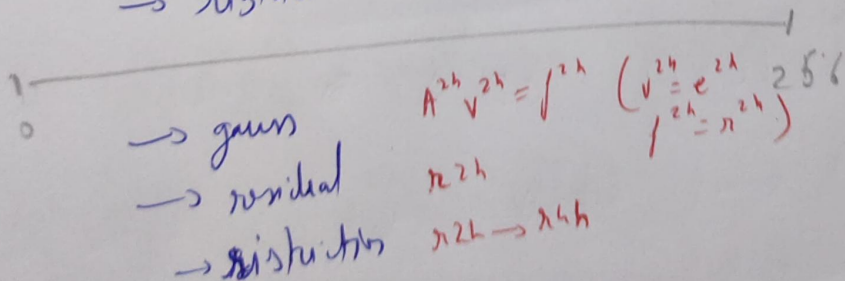 0 256
→ gauss A^2h v^2h = f^2h (v^2h = e^2h
f^2h = r^2h)
→ residual r2h
→ ristriction r2h → r4h